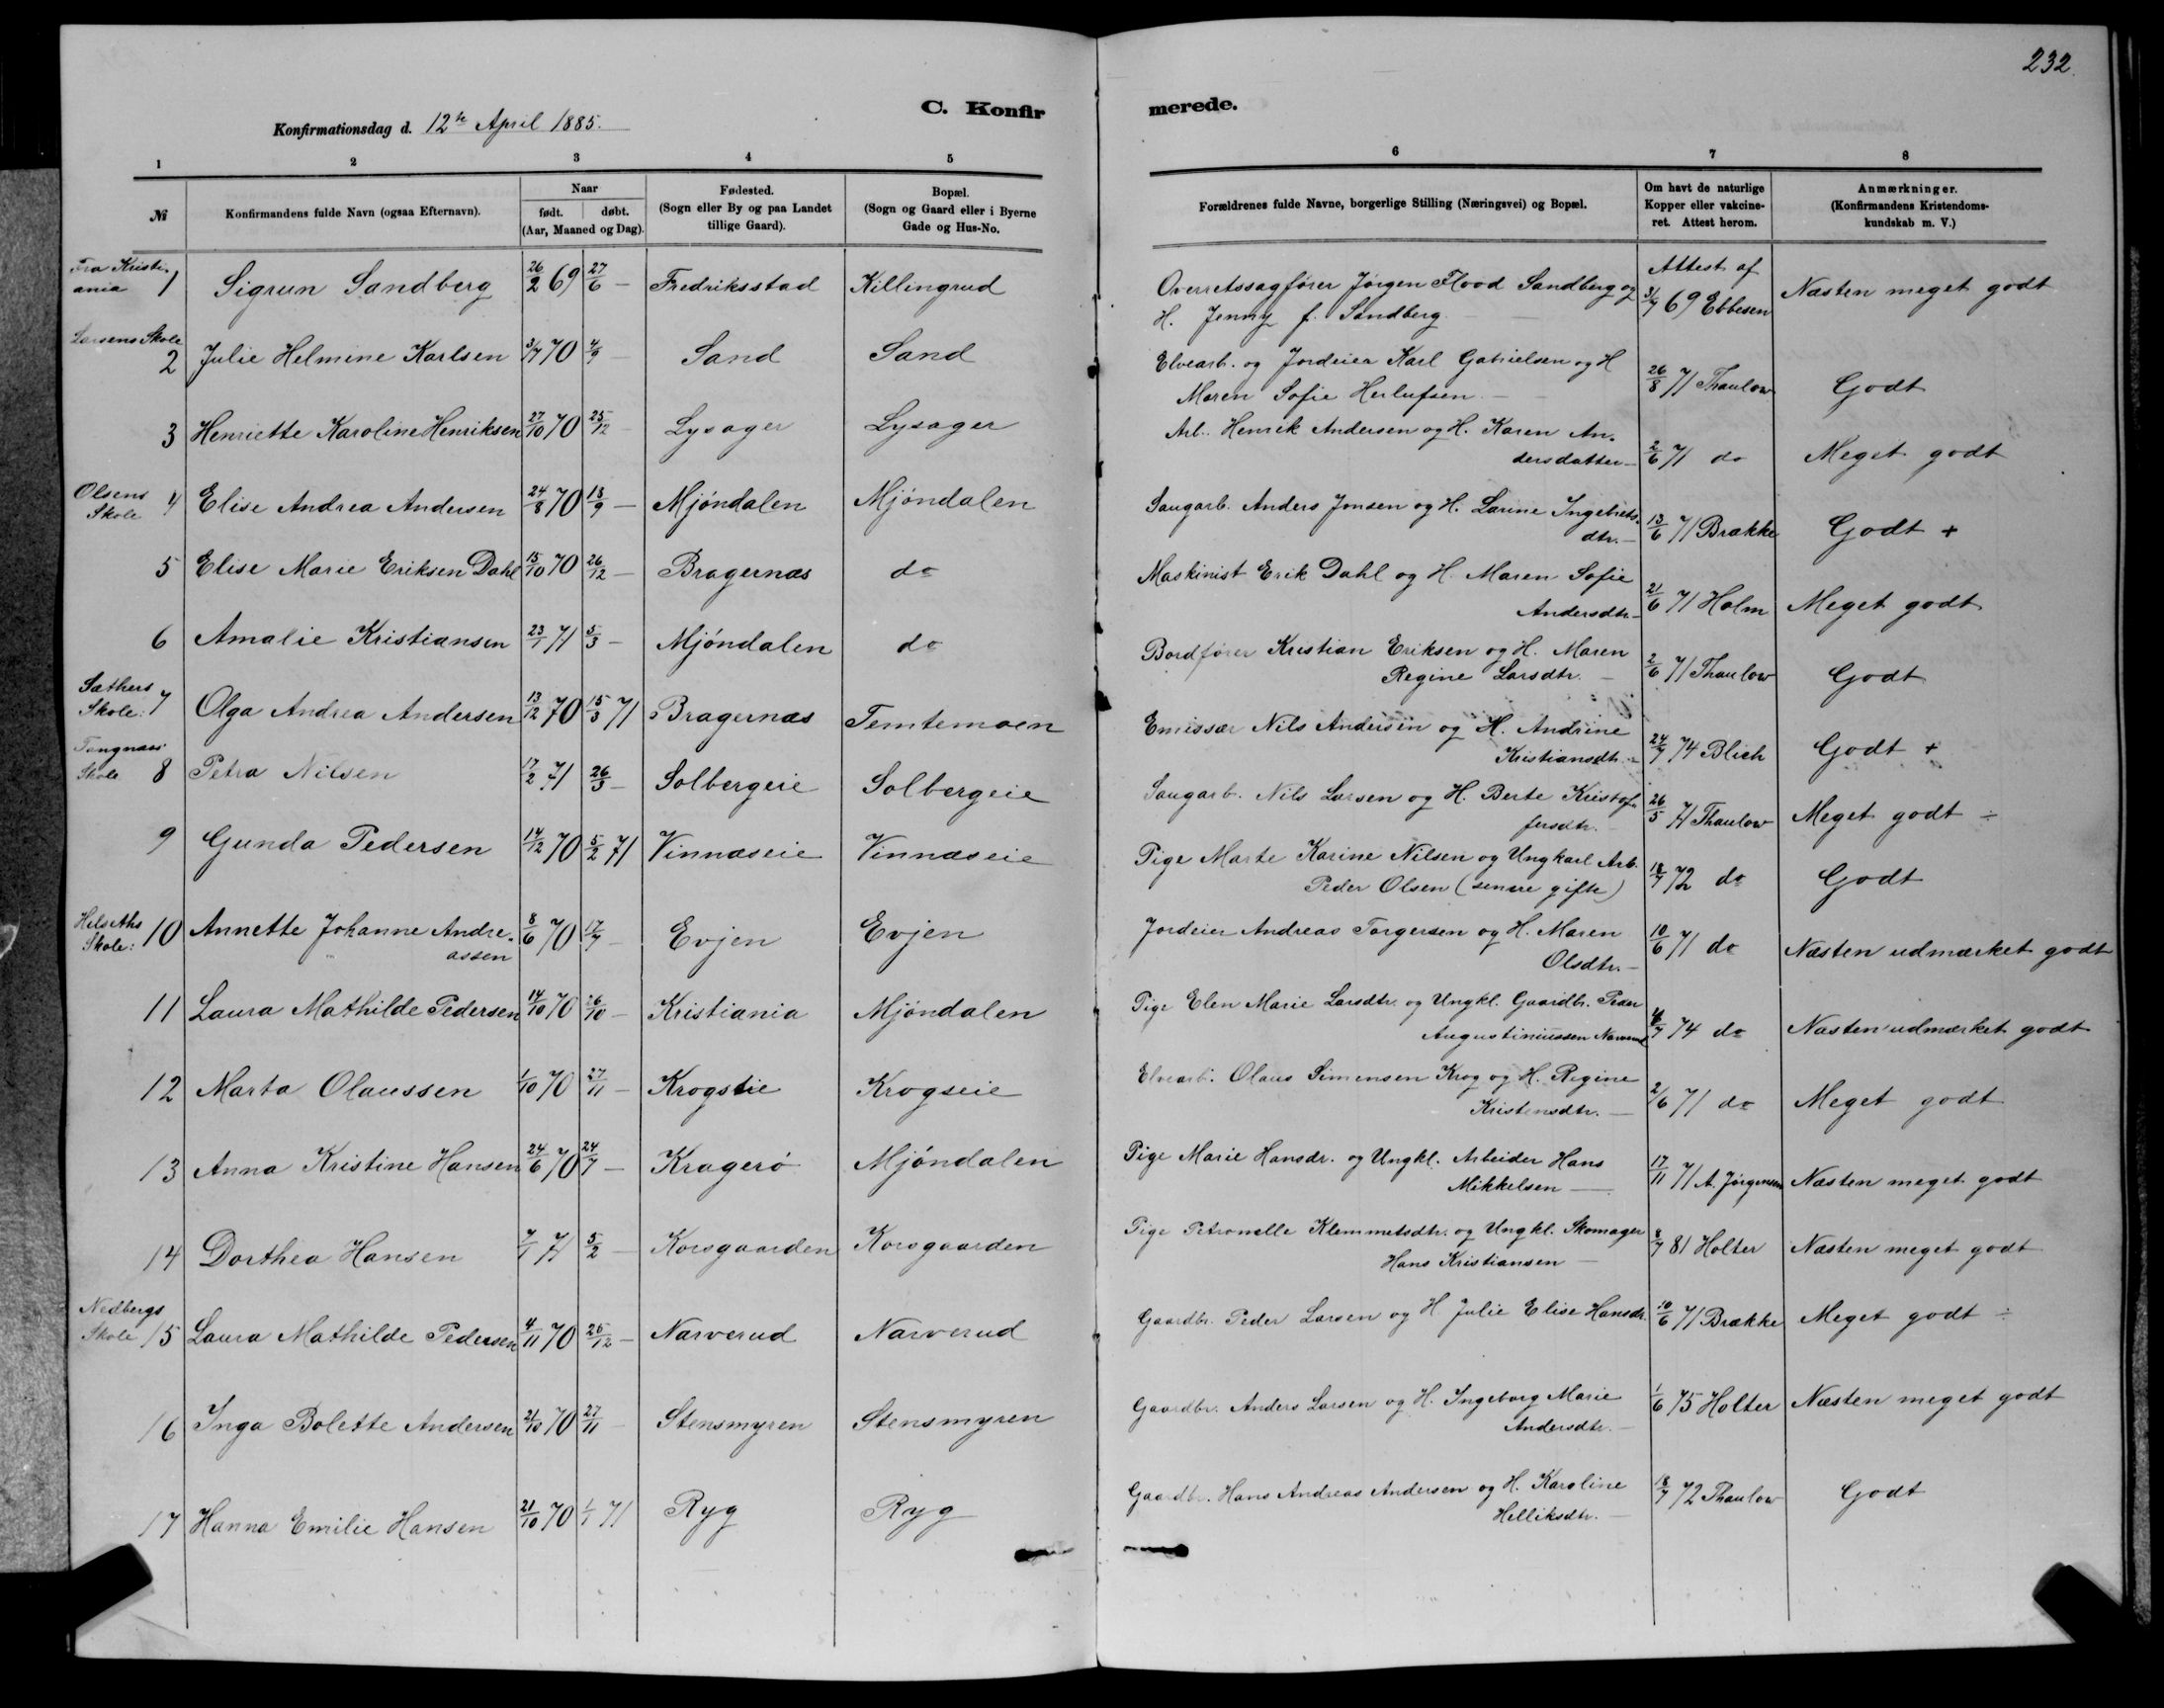 232.
C. Konfir
merede.
Konfirmationsdag d. 12te April 1885.
1 2 3 4 5
6 7 8
№ Konfirmandens fulde Navn (ogsaa Efternavn). Naar født. døbt. (Aar, Maaned og Dag). Fødested. (Sogn eller By og paa Landet tillige Gaard). Bopæl. (Sogn og Gaard eller i Byerne Gade og Hus-No.
Forældrenes fulde Navne, borgerlige Stilling (Næringsvei) og Bopæl. Om havt de naturlige Kopper eller vakcineret. Attest herom. Anmærkninger. (Konfirmandens Kristendomskundskab m. V.)
Fra Kristiania 1 Sigrun Sandberg 26/2 69 27/6 — Fredriksstad Killingrud Overretssagfører Jørgen Flood Sandberg og H. Jenny f. Sandberg. Attest af 31/7 69 Ebbesen Næsten meget godt
Larsens Skole 2 Julie Helmine Karlsen 3/7 70 4/9 Sand Sand Elvearb. og Jordeier Karl Gabrielsen og H Maren Sofie Herlufsen — 26/8 71 Thaulow Godt
3 Henriette Karoline Henriksen 27/10 70 25/12 Lysager Lysager Arb. Henrik Andersen og H. Karen Andersdatter — 2/6 71 do Meget godt
Olsens Skole 4 Elise Andrea Andersen 24/8 70 18/9 — Mjöndalen Mjöndalen Saugarb. Anders Jonsen og H. Larine Ingebretsdtr. — 13/6 71 Brække Godt +
5 Elise Marie Eriksen Dahl 15/10 70 26/12 — Bragernæs do Maskinist Erik Dahl og H. Maren Sofie Andersdtr — 21/6 71 Holm Meget godt
6 Amalie Kristiansen 23/1 71 5/3 — Mjöndalen do Bordfører Kristian Eriksen og H. Maren Regine Larsdtr. — 2/6 71 Thaulow Godt
Sæthers Skole: 7 Olga Andrea Andersen 13/12 70 15/3 71 Bragernæs Temtemoen Emissær Nils Andersen og H. Andrine Kristiansdtr — 24/7 74 Blich Godt +
Tangnæs Skole 8 Petra Nilsen 17/2 71 26/3 — Solbergeie Solbergeie Saugarb. Nils Larsen og H. Berte Kristoffersdtr. 26/5 71 Thaulow Meget godt ÷
9 Gunda Pedersen 14/12 70 5/2 71 Vinnæseie Vinnæseie Pige Marte Karine Nilsen og Ungkarl Arb. Peder Olsen (senere gifte) 18/7 72 do Godt
Helseths Skole: 10 Annette Johanne Andreassen 8/6 70 17/7 — Evjen Evjen Jordeier Andreas Torgersen og H. Maren Olsdtr. — 10/6 71 do Næsten udmærket godt
11 Laura Mathilde Pedersen 14/10 70 26/10 — Kristiania Mjöndalen Pige Elen Marie Larsdtr. og Ungkl. Gaardbr. Peder Augustinussen Narverud 74 do Næsten udmærket godt
12 Marta Olaussen 1/10 70 27/11 — Krogseie Krogseie Elvearb. Olaus Simensen Krog og H. Regine Kristensdtr. — 2/6 71 do Meget godt
13 Anna Kristine Hansen 24/6 70 24/7 — Kragerö Mjöndalen Pige Marie Hansdr. og Ungkl. Arbeider Hans Mikkelsen — 17/11 71 A. Jørgensen Næsten meget godt
14 Dorthea Hansen 7/1 71 5/2 — Korsgaarden Korsgaarden Pige Petronelle Klemmetsdtr. og Ungkl. Skomager Hans Kristiansen — 8/7 81 Holter Næsten meget godt
Nedbergs Skole 15 Laura Mathilde Pedersen 4/11 70 26/12 — Narverud Narverud Gaardbr. Peder Larsen og H Julie Elise Hansdr. 10/6 71 Brække Meget godt ÷
16 Inga Bolette Andersen 21/10 70 27/11 Stensmyren Stensmyren Gaardbr. Anders Larsen og H. Ingeborg Marie Andersdtr. — 1/6 75 Holter Næsten meget godt
17 Hanna Emilie Hansen 21/10 70 1/1 71 Ryg Ryg Gaardbr. Hans Andreas Andersen og H. Karoline Helliksdtr. — 18/7 72 Thaulow Godt